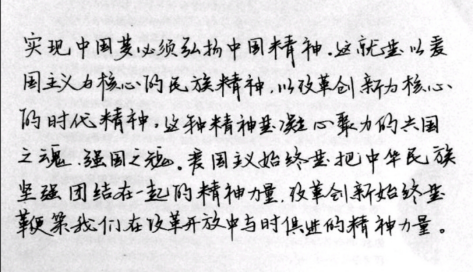 实现中国梦必须弘扬中国精神。这就是以爱
国主义为核心的民族精神，以改革创新为核心
的时代精神。这种精神是凝心聚力的兴国
之魂、强国之魂。爱国主义始终是把中华民族
坚强团结在一起的精神力量，改革创新始终是
鞭策我们在改革开放中与时俱进的精神力量。